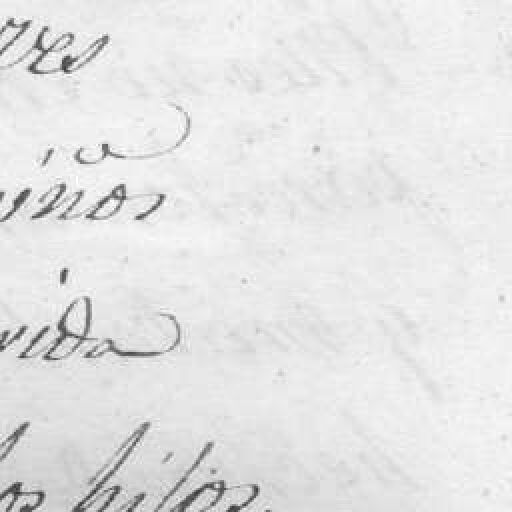 res
ia
vinos
rida
los hijos.